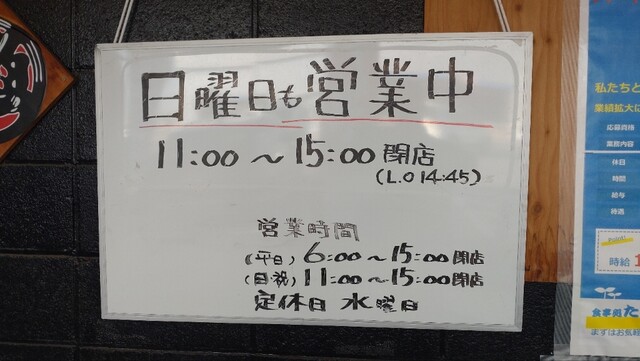 日曜日も営業中
11:00～15:00閉店
(L.O 14:45)
営業時間
(平日) 6:00～15:00閉店
(日・祝) 11:00～15:00閉店
定休日 水曜日
私たちと
業績拡大に
応募資格
業務内容
休日
時間
給与
待遇
時給 1
食事処 た
まずはお気軽